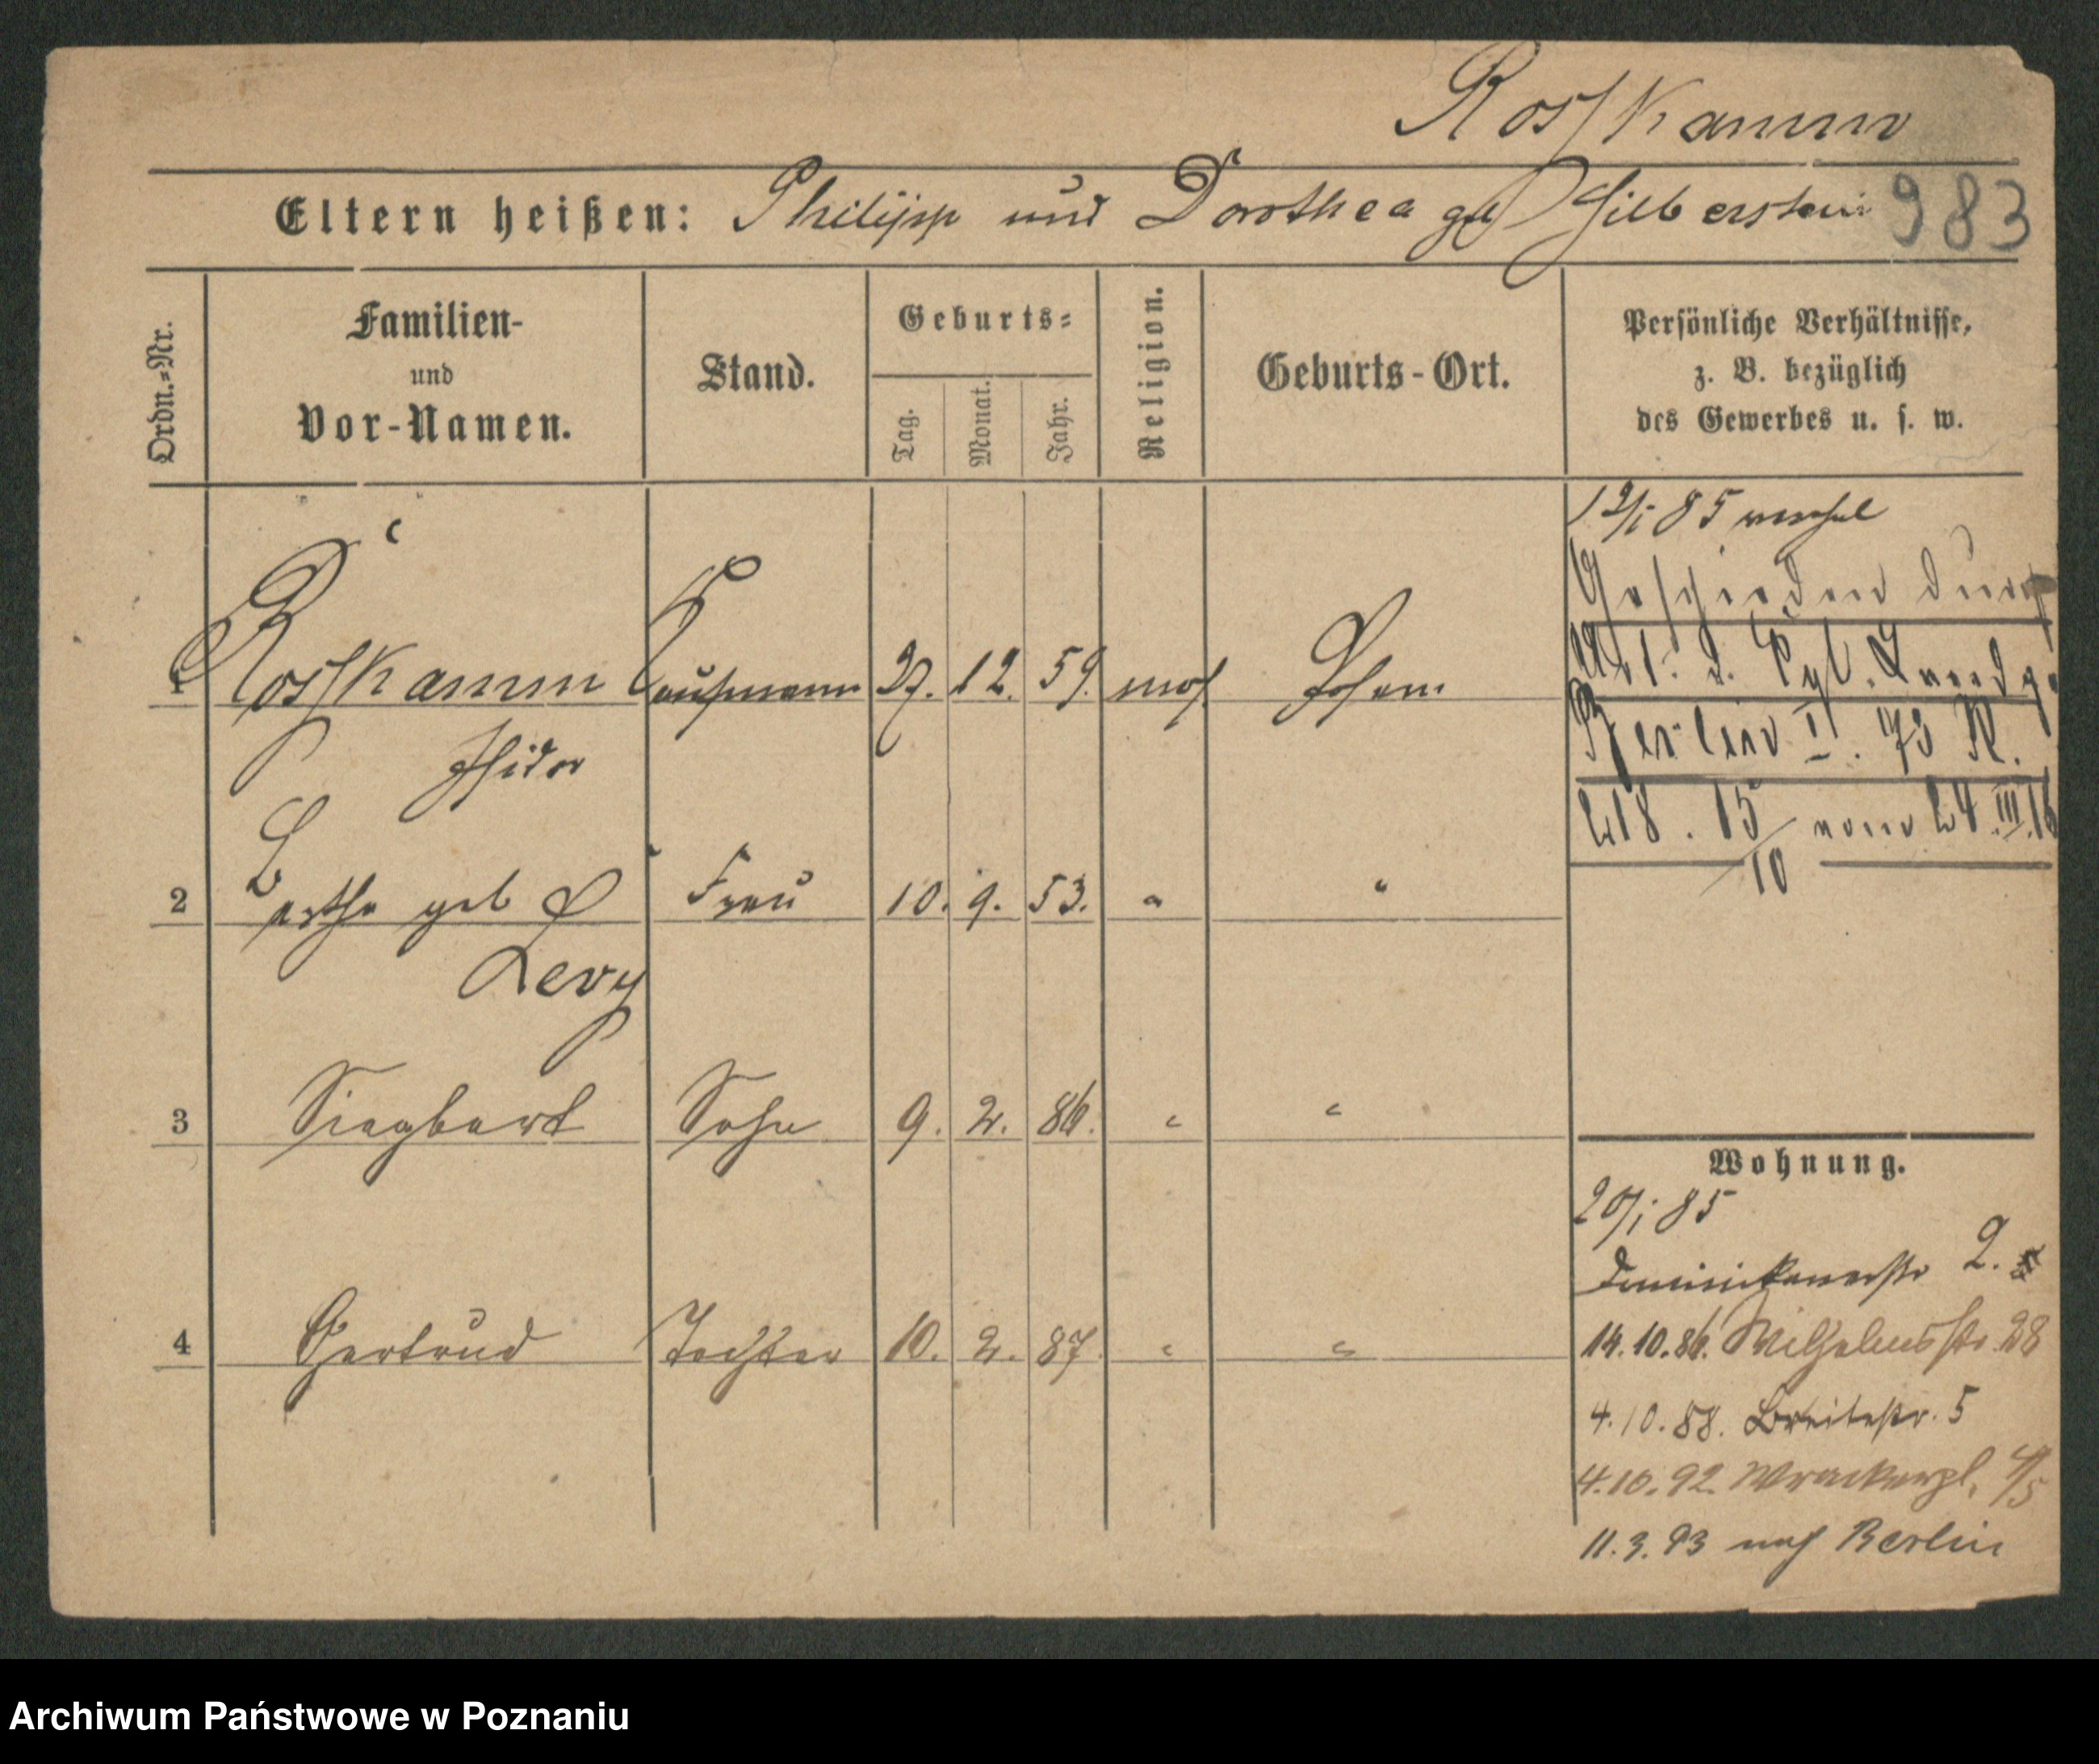 Rosskamm
Eltern heißen: Philipp und Dorothea geb Silberstein 983
Ordn.=Nr.
Familien-
und
Vor-Namen.
Stand.
Geburts=
Tag.
Monat.
Jahr.
Religion.
Geburts-Ort.
Persönliche Verhältnisse,
z. B. bezüglich
des Gewerbes u. s. w.
85
Geschieden durch
Urt. d. Kgl. Landg.
Berlin I. 73 R.
218.15/10 vom 24.III.16
1 Rosskamm Kaufmann 27. 12. 59. mos Posen
Isidor
2 Bertha geb Frau 10. 9. 53. " "
Levy
3 Siegbert Sohn 9. 2. 86. " "
4 Gertrud Tochter 10. 2. 87. " "
Wohnung.
85
Dominikanerstr 2.
14.10.86. Wilhelmsstr. 28
4.10.88. Breitestr. 5
4.10.92 4/5
11.3.93 nach Berlin
Archiwum Państwowe w Poznaniu